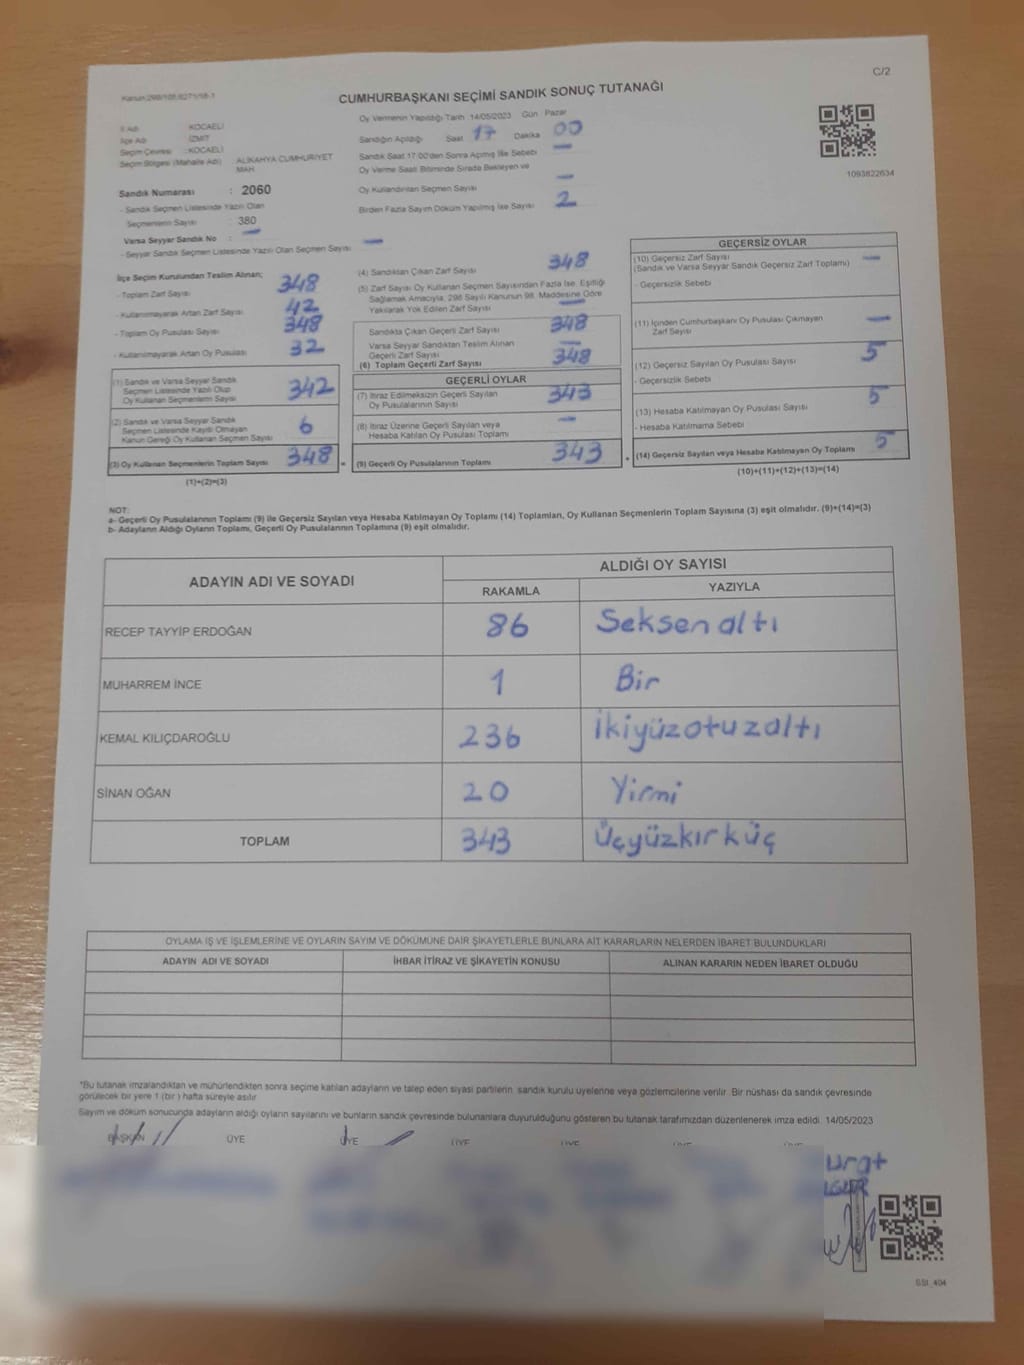 C/2
Kanun:298/105,6271/18-1
CUMHURBAŞKANI SEÇİMİ SANDIK SONUÇ TUTANAĞI
1093822634
İl Adı : KOCAELİ
İlçe Adı : İZMİT
Seçim Çevresi : KOCAELİ
Seçim Bölgesi (Mahalle Adı) : ALİKAHYA CUMHURİYET
MAH.
Sandık Numarası : 2060
- Sandık Seçmen Listesinde Yazılı Olan
Seçmenlerin Sayısı : 380
Varsa Seyyar Sandık No : —
- Seyyar Sandık Seçmen Listesinde Yazılı Olan Seçmen Sayısı —
Oy Vermenin Yapıldığı Tarih 14/05/2023 Gün Pazar
Sandığın Açıldığı Saat 17 Dakika 00
Sandık Saat 17:00'den Sonra Açılmış İse Sebebi —
Oy Verme Saati Bitiminde Sırada Bekleyen ve
Oy Kullandırılan Seçmen Sayısı —
Birden Fazla Sayım Döküm Yapılmış İse Sayısı 2
İlçe Seçim Kurulundan Teslim Alınan;
- Toplam Zarf Sayısı 348
- Kullanılmayarak Artan Zarf Sayısı 42
- Toplam Oy Pusulası Sayısı 348
- Kullanılmayarak Artan Oy Pusulası 32
(1) Sandık ve Varsa Seyyar Sandık
Seçmen Listesinde Yazılı Olup
Oy Kullanan Seçmenlerin Sayısı 342
(2) Sandık ve Varsa Seyyar Sandık
Seçmen Listesinde Kayıtlı Olmayan
Kanun Gereği Oy Kullanan Seçmen Sayısı 6
(3) Oy Kullanan Seçmenlerin Toplam Sayısı 348 =
(1)+(2)=(3)
(4) Sandıktan Çıkan Zarf Sayısı 348
(5) Zarf Sayısı Oy Kullanan Seçmen Sayısından Fazla İse, Eşitliği
Sağlamak Amacıyla, 298 Sayılı Kanunun 98. Maddesine Göre
Yakılarak Yok Edilen Zarf Sayısı —
Sandıkta Çıkan Geçerli Zarf Sayısı 348
Varsa Seyyar Sandıktan Teslim Alınan
Geçerli Zarf Sayısı —
(6) Toplam Geçerli Zarf Sayısı 348
GEÇERLİ OYLAR
(7) İtiraz Edilmeksizin Geçerli Sayılan
Oy Pusulalarının Sayısı 343
(8) İtiraz Üzerine Geçerli Sayılan veya
Hesaba Katılan Oy Pusulası Toplamı —
(9) Geçerli Oy Pusulalarının Toplamı 343 +
GEÇERSİZ OYLAR
(10) Geçersiz Zarf Sayısı —
(Sandık ve Varsa Seyyar Sandık Geçersiz Zarf Toplamı)
- Geçersizlik Sebebi
(11) İçinden Cumhurbaşkanı Oy Pusulası Çıkmayan
Zarf Sayısı —
(12) Geçersiz Sayılan Oy Pusulası Sayısı 5
- Geçersizlik Sebebi
(13) Hesaba Katılmayan Oy Pusulası Sayısı 5
- Hesaba Katılmama Sebebi
(14) Geçersiz Sayılan veya Hesaba Katılmayan Oy Toplamı 5
(10)+(11)+(12)+(13)=(14)
NOT:
a- Geçerli Oy Pusulalarının Toplamı (9) ile Geçersiz Sayılan veya Hesaba Katılmayan Oy Toplamı (14) Toplamları, Oy Kullanan Seçmenlerin Toplam Sayısına (3) eşit olmalıdır. (9)+(14)=(3)
b- Adayların Aldığı Oyların Toplamı, Geçerli Oy Pusulalarının Toplamına (9) eşit olmalıdır.
ADAYIN ADI VE SOYADI ALDIĞI OY SAYISI
RAKAMLA YAZIYLA
RECEP TAYYİP ERDOĞAN 86 Seksen altı
MUHARREM İNCE 1 Bir
KEMAL KILIÇDAROĞLU 236 İkiyüzotuzaltı
SİNAN OĞAN 20 Yirmi
TOPLAM 343 Üçyüzkırküç
OYLAMA İŞ VE İŞLEMLERİNE VE OYLARIN SAYIM VE DÖKÜMÜNE DAİR ŞİKAYETLERLE BUNLARA AİT KARARLARIN NELERDEN İBARET BULUNDUKLARI
ADAYIN ADI VE SOYADI İHBAR İTİRAZ VE ŞİKAYETİN KONUSU ALINAN KARARIN NEDEN İBARET OLDUĞU
*Bu tutanak imzalandıktan ve mühürlendikten sonra seçime katılan adayların ve talep eden siyasi partilerin, sandık kurulu üyelerine veya gözlemcilerine verilir. Bir nüshası da sandık çevresinde
görülecek bir yere 1 (bir ) hafta süreyle asılır.
Sayım ve döküm sonucunda adayların aldığı oyların sayılarını ve bunların sandık çevresinde bulunanlara duyurulduğunu gösteren bu tutanak tarafımızdan düzenlenerek imza edildi. 14/05/2023
BAŞKAN ÜYE ÜYE ÜYE ÜYE
SSI_404